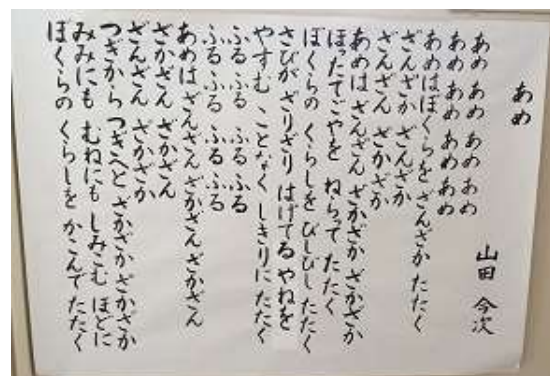 あめ
山田 今次
あめ あめ あめ あめ
あめ あめ あめ あめ
あめはぼくらを ざんざか たたく
ざんざか ざんざか
ざんざん ざかざか
あめは ざんざん ざかざか ざかざか
ほったてごやを ねらって たたく
ぼくらの くらしを びしびし たたく
さびが ざりざり はげてる やねを
やすむ ことなく しきりに たたく
ふる ふる ふる ふる
ふる ふる ふる ふる
あめは ざんざん ざかざん ざかざん
ざかざん ざかざん
ざんざん ざかざか
つぎから つぎへと ざかざか ざかざか
みみにも むねにも しみこむ ほどに
ぼくらの くらしを かこんで たたく